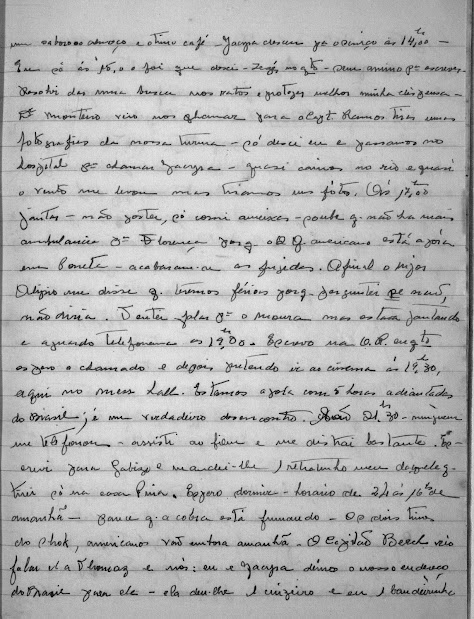 um saboroso almoço e otimo café - Jacyra desceu pa o serviço ás 14,00 -
Eu só ás 15,00 foi que desci - no qto - sem animo pa escrever.
Resolvi dar uma busca nos ratos e proteger melhor minha dispensa -
Dr Monteiro veio nos chamar para o Capt. Ramos tirar umas
fotografias da nossa turma - só desci eu e passamos no
hospital pa chamar Jacyra - quasi caimos no rio e quasi
o vento me levou mas tiramos uns fótos. Ás 17,00
jantar - não gostei, só comi ameixas - soube q. não ha mais
ambulancia pa Florença porq. o Q.G. americano está agora
em - acabaram-se os passeios. Afinal o major
me disse q. teremos férias porq. perguntei se não,
não diria. Tentei falar pa o Moura mas estava jantando
e aguardo telefonema ás 19,00. Escrevo na enqto
espero o chamado e depois pretendo ir ao cinema ás 19,30,
aqui no mess hall. Estamos agora com 5 horas adiantadas
do Brasil; é um verdadeiro desencontro. São 21,30 - ninguem
me telefonou - assisti ao filme e me distraí bastante. Es-
crevi para e mandei-lhe 1 retratinho meu daquele q.
tirei só na casa Pina. Espero dormir - horario de 24 ás 16hs de
amanhã - parece q. a cobra está fumando - Os dois times
do shok, americanos vão embora amanhã. O Capitão Beech veio
falar c/ a Thomaz e nós: eu e Jacyra démos o nosso endereço
do Brasil para ele - ela deu-lhe 1 cruzeiro e eu 1 bandeirinha